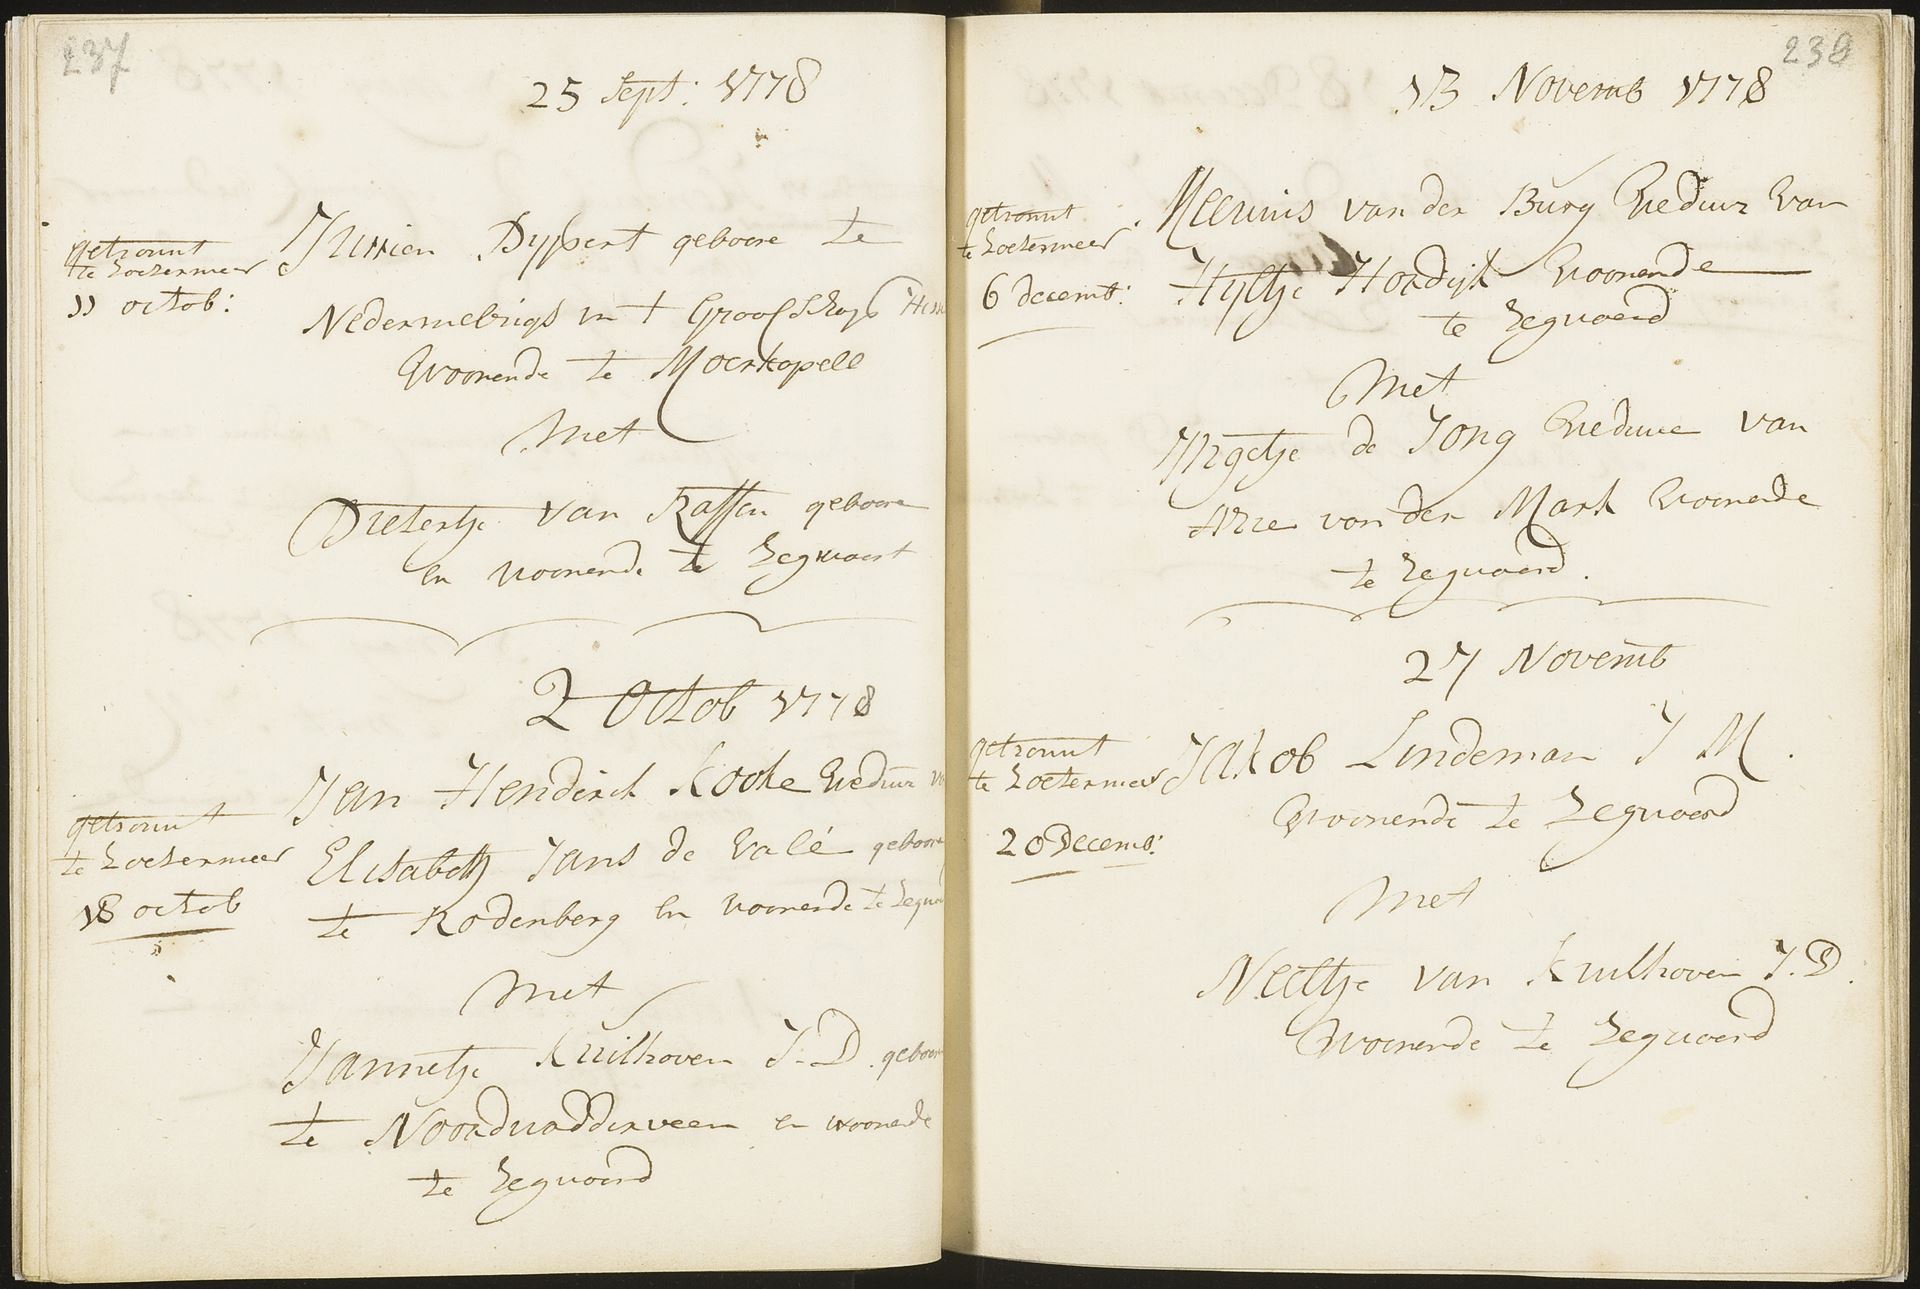 237
25 Sept: 1778
getrouwt
te Zoetermeer
11 octob:
Jurrien Dyppert geboore te
Nedermelrigs in t Graafschap Hess
Woonende te Moerkapelle
Met
Pietertje van Raffen geboore
en woonende te Zegwaert
2 Octob 1778
getrouwt
te Zoetermeer
18 octob
Jan Hendirck Kooke Weduwr v
Elisabeth Jans de Valé geboore
te Rodenberg en woonende te Zegwa
Met
Jannetje Kuilhoven J.D. geboor
te Noordwadderveen en woonende
te Zegwaard
238
13 Novemb 1778
getrouwt
te Zoetermeer
6 decemb:
Meeuwis van der Burg Weduwr van
Hyltje Hordijk woonende
te Zegwaerd
Met
Ingetje de Jong Weduwe van
Arie van der Mark Woonende
te Zegwaerd.
27 Novemb
getrouwt
te Zoetermeer
20 Decemb:
Jakob Lindeman J M.
Woonende te Zegwaerd
Met
Neeltje van Kuilhoven J.D.
Woonende te Zegwaerd